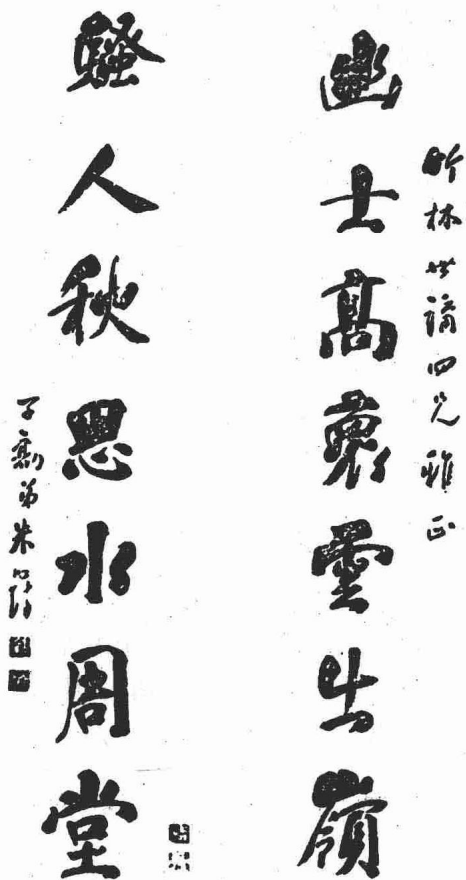 昕林世講四兄雅正
幽士高懷雲出嶺
騷人秋思水周堂
子勷弟朱